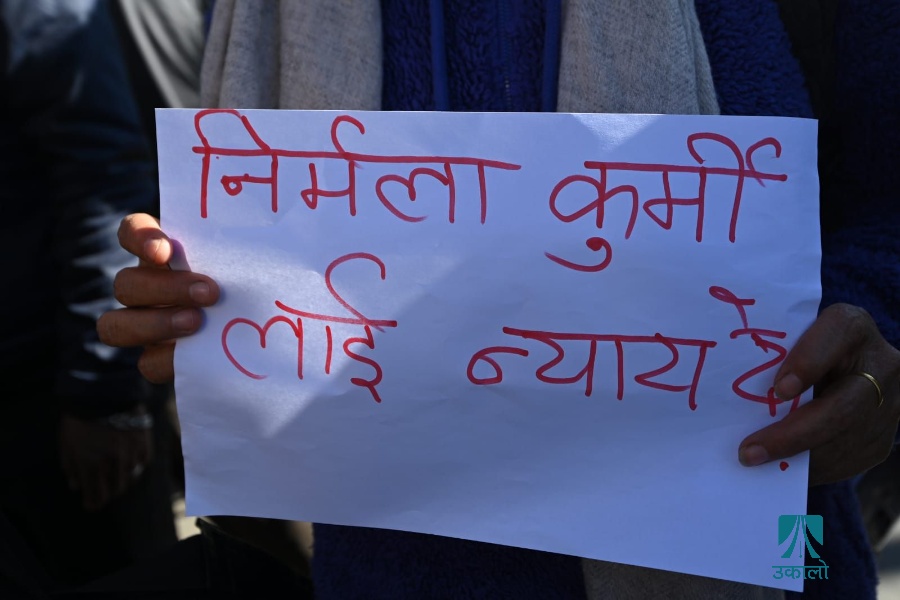 निर्मला कुर्मी
लाई न्याय दे
उकालो